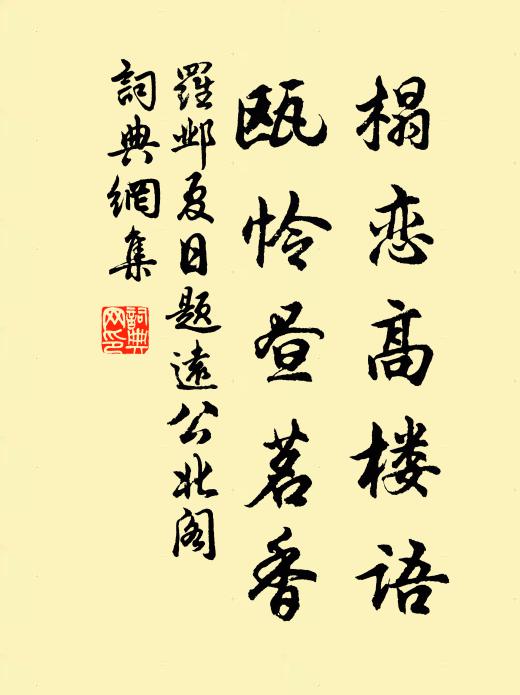 榻恋高楼语
瓯怜昼茗香
羅邺夏日题遠公北阁
詞典網集
詞典网印